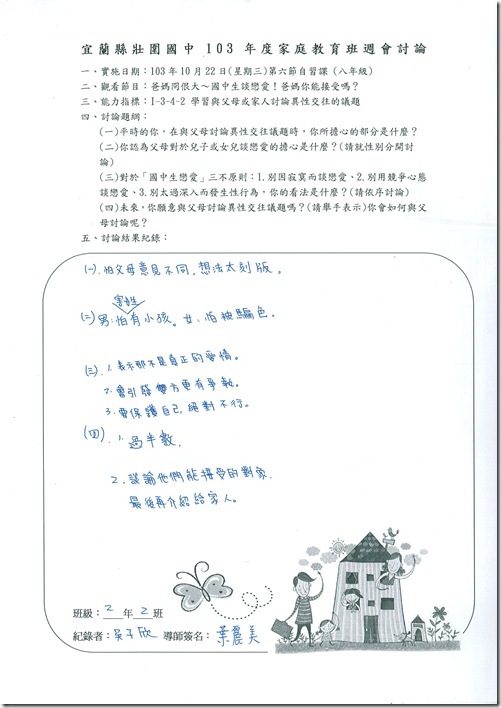 宜蘭縣壯圍國中 103 年度家庭教育班週會討論
一、實施日期：103 年 10 月 22 日(星期三)第六節自習課 (八年級)
二、觀看節目：爸媽冏很大～國中生談戀愛！爸媽你能接受嗎？
三、能力指標：1-3-4-2 學習與父母或家人討論異性交往的議題
四、討論題綱：
(一)平時的你，在與父母討論異性交往議題時，你所擔心的部分是什麼？
(二)你認為父母對於兒子或女兒談戀愛的擔心是什麼？(請就性別分開討
論)
(三)對於「國中生戀愛」三不原則：1.別因寂寞而談戀愛、2.別用競爭心態
談戀愛、3.別太過深入而發生性行為，你的看法是什麼？(請依序討論)
(四)未來，你願意與父母討論異性交往議題嗎？(請舉手表示)你會如何與父
母討論呢？
五、討論結果紀錄：
(一).怕父母意見不同，想法太刻版。
害姓
(二)男:怕有小孩。女:怕被騙色。
(三).1.表示那不是真正的愛情。
2.會引發雙方更有爭執。
3.要保護自己,絕對不行。
(四).1.過半數.
2.談論他們能接受的對象.
最後再介紹給家人。
班級：2年2班
紀錄者：吳子欣 導師簽名：葉麗美